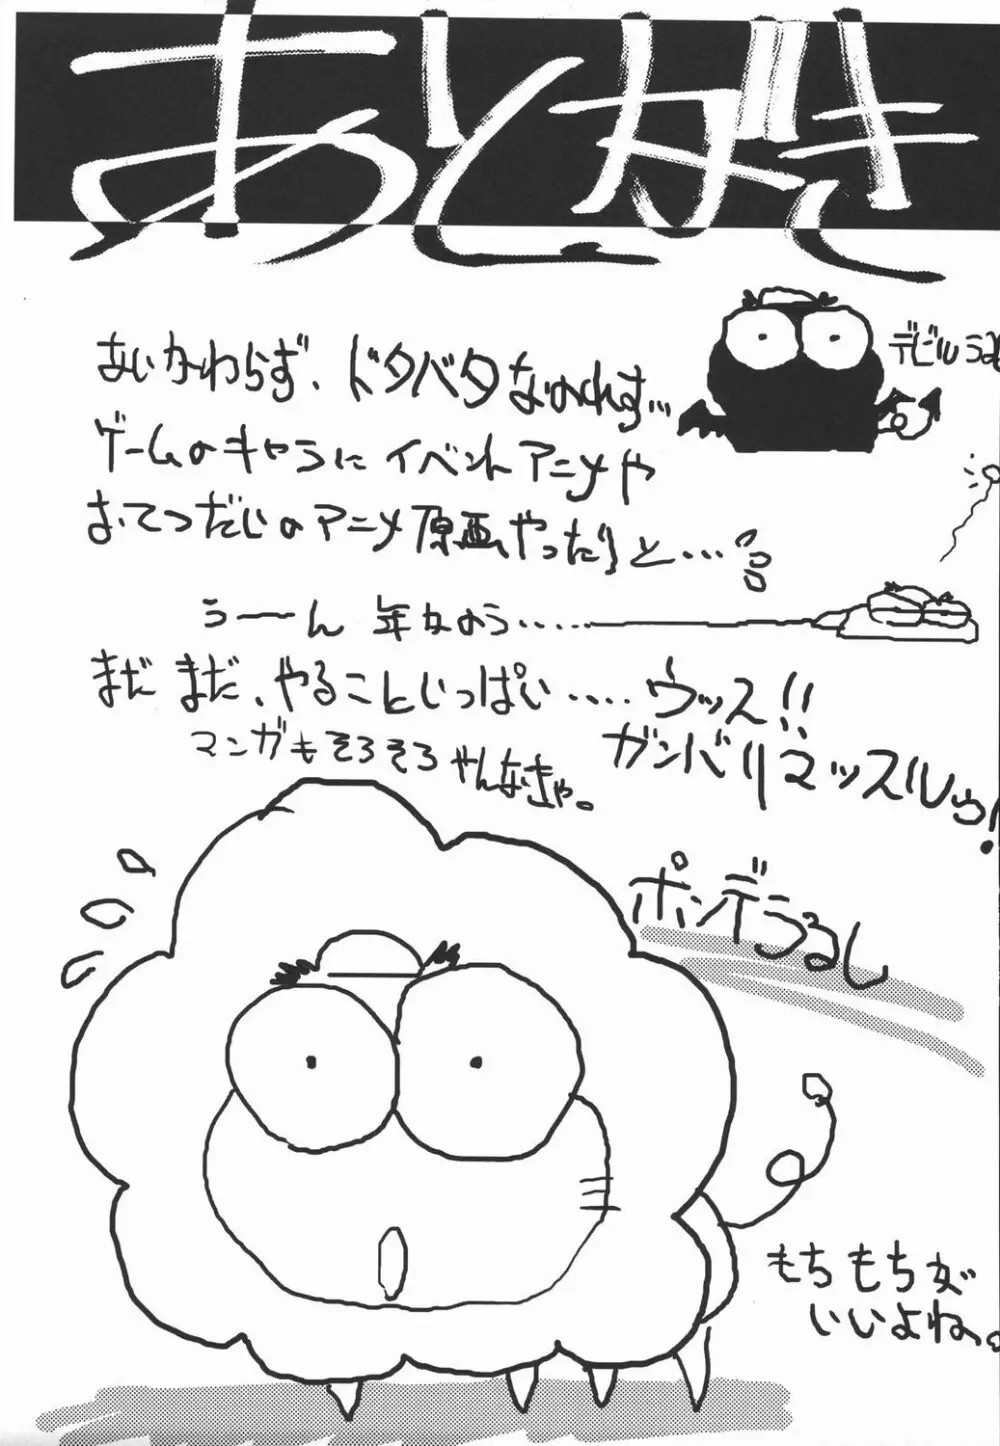 あとがき
あいかわらず、ドタバタなのれす…
デビルうる
ゲームのキャラにイベントアニメや
おてつだいのアニメ原画やったりと…
うーーん 年かのう……
まだまだ、やることいっぱい‥‥ ウッス!!
マンガもそろそろやんなきゃ。
ガンバリマッスルゥ!
ポンデうるし
もちもちが
いいよね。